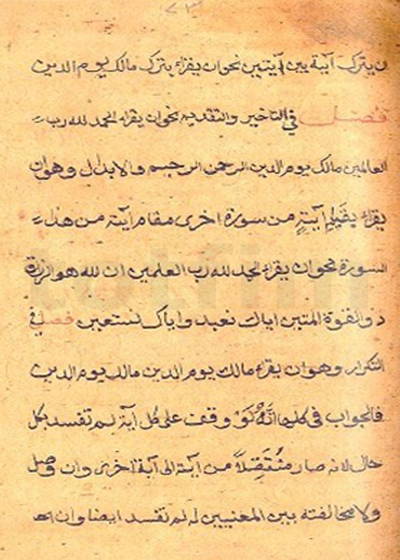 ٧٣
ن يترك آية بين آيتين نحو ان يقراء بترك مالك يوم الدين
فصل في التاخير والتقديم نحو ان يقراء الحمد لله رب
العالمين مالك يوم الدين الرحمن الرحيم والابدال وهو ان
يقراء آيةٍ من سورة اخرى مقام آية من هذه
السورة نحو ان يقراء الحمد لله رب العلمين ان لله هو الرزاق
ذو القوة المتين اياك نعبد واياك نستعين فصل في
التكرار وهو ان يقراء مالك يوم الدين مالك يوم الدين
فالجواب في كلها انّه لو وقف على كل آية لم تفسد بكل
حال لانه صار منتقلاً من آية الى آية اخرى وان وصل
ولا مخالفته بين المعنيين له لم تفسد ايضا وان